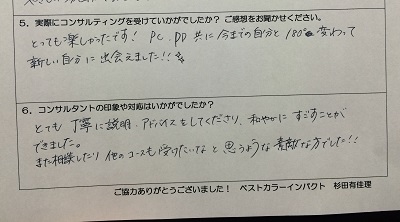 5．実際にコンサルティングを受けていかがでしたか？ ご感想をお聞かせください。
とっても楽しかったです! PC、PD 共に今までの自分と180°変わって
新しい自分に出会えました!!
6．コンサルタントの印象や対応はいかがでしたか？
とても丁寧に説明・アドバイスをしてくださり、和やかにすごすことが
できました。
また相談したり他のコースも受けたいなと思うような素敵な方でした!!
ご協力ありがとうございました！ ベストカラーインパクト 杉田有佳理